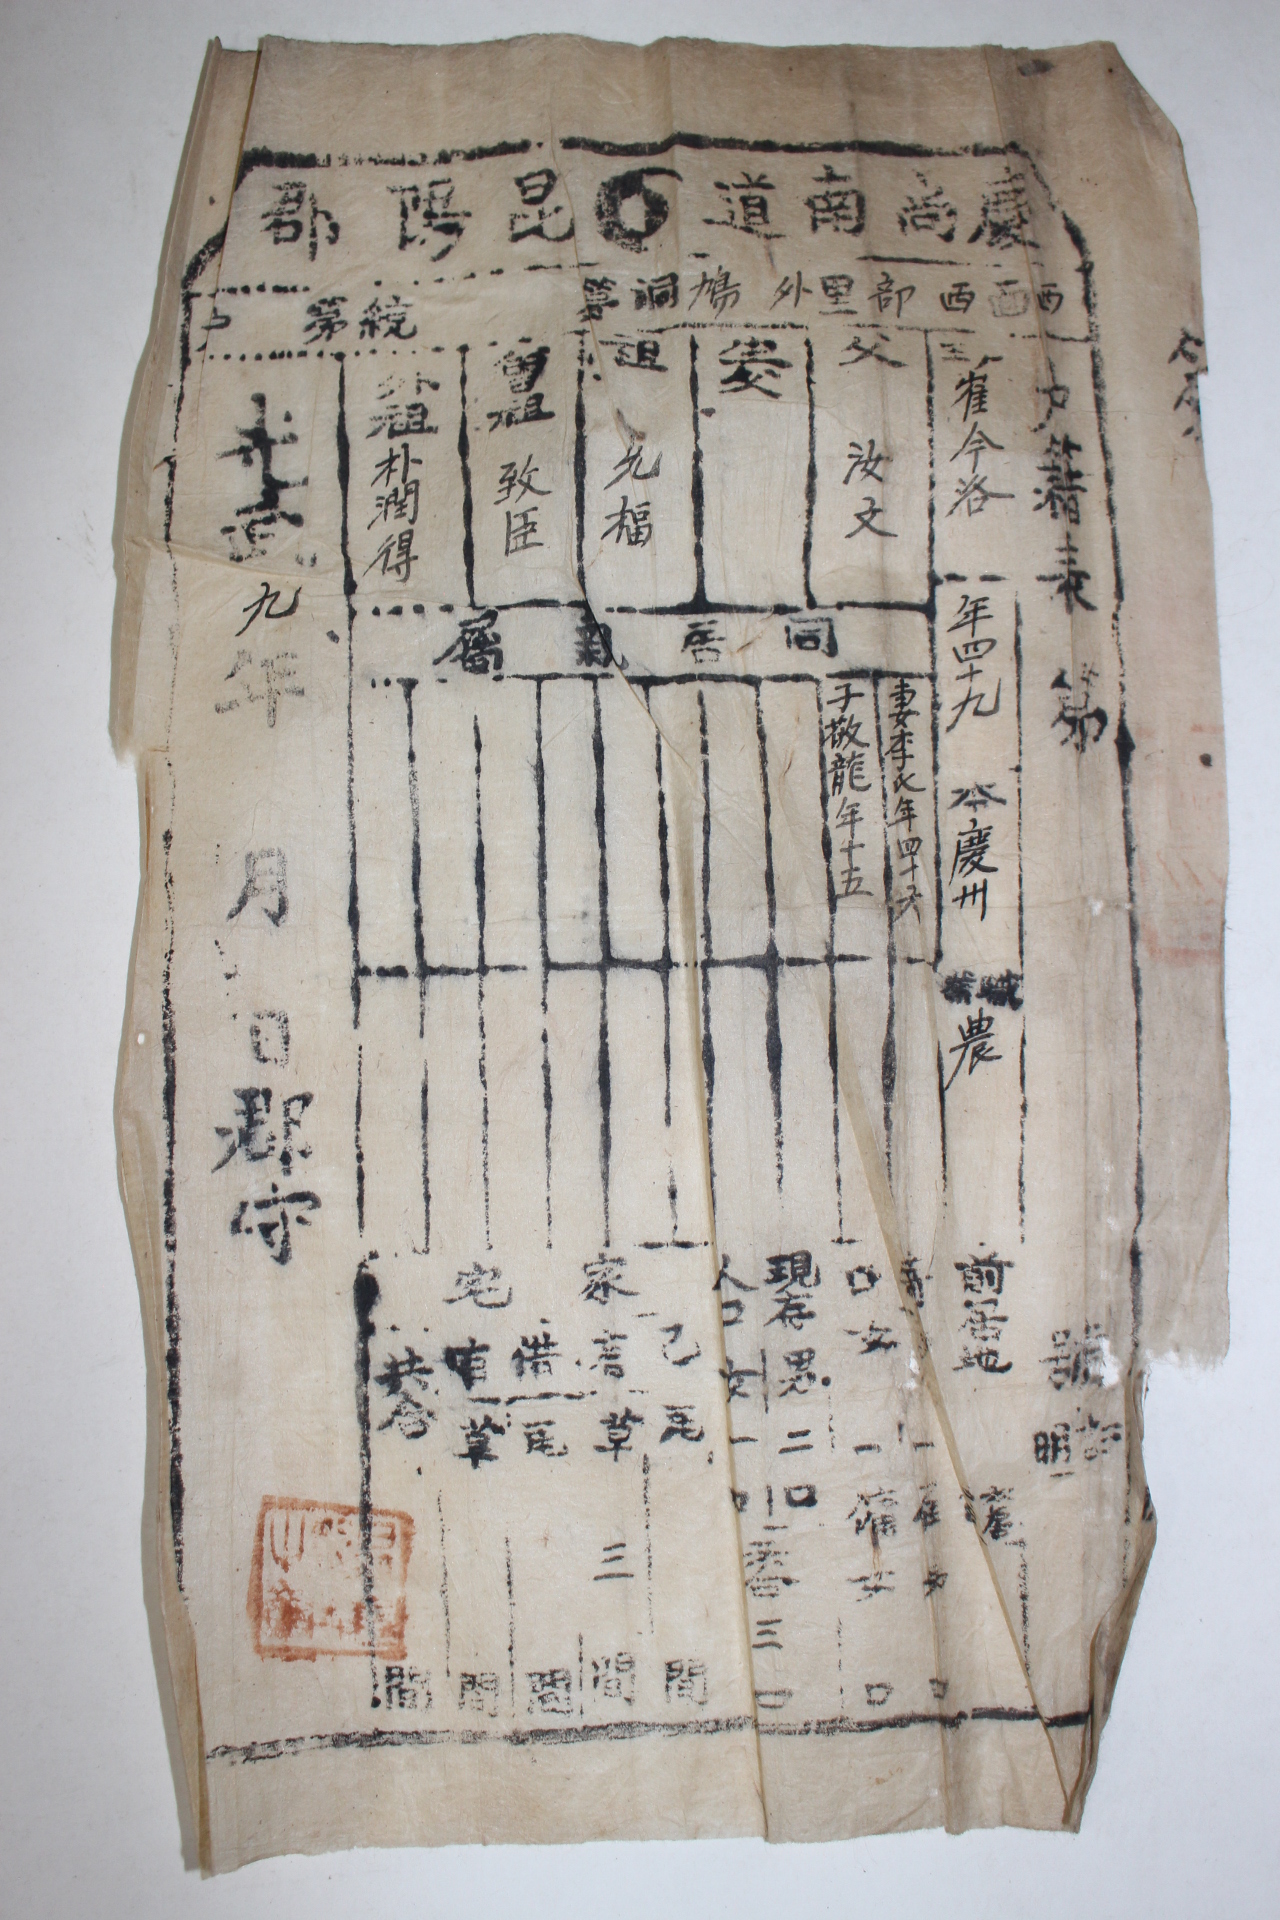 慶尚南道 昆陽郡
西面 西部里外鳩洞 第 統 第 戶
戶籍表 第 號
崔今洛 年四十九 本慶州 職業 農 前居地
父 汝文
祖 允福
曾祖 致臣
外祖 朴潤得
同居親屬
妻李氏年四十六
子敬龍年十五
口 女 一 傭女 口
現存 男 二口
人口 女 一口
共合 三口
家宅
己有 瓦 間
草 三間
借有 瓦 間
草 間
共合 間
光武九年 月 日 郡守